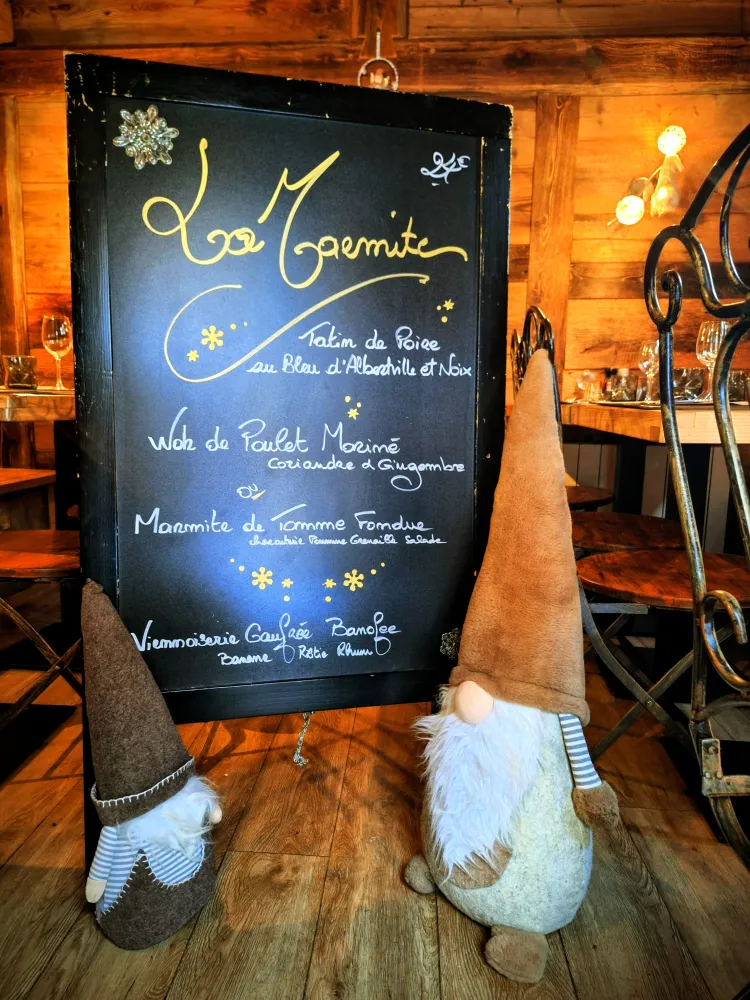 La Marmite
24€
Tatin de Poire
au Bleu d'Albertville et Noix
Wok de Poulet Mariné
Coriandre & Gingembre
ou
Marmite de Tomme Fondue
charcuterie Pomme Grenaille Salade
Viennoiserie Gaufrée Banofee
Banane Rôtie Rhum